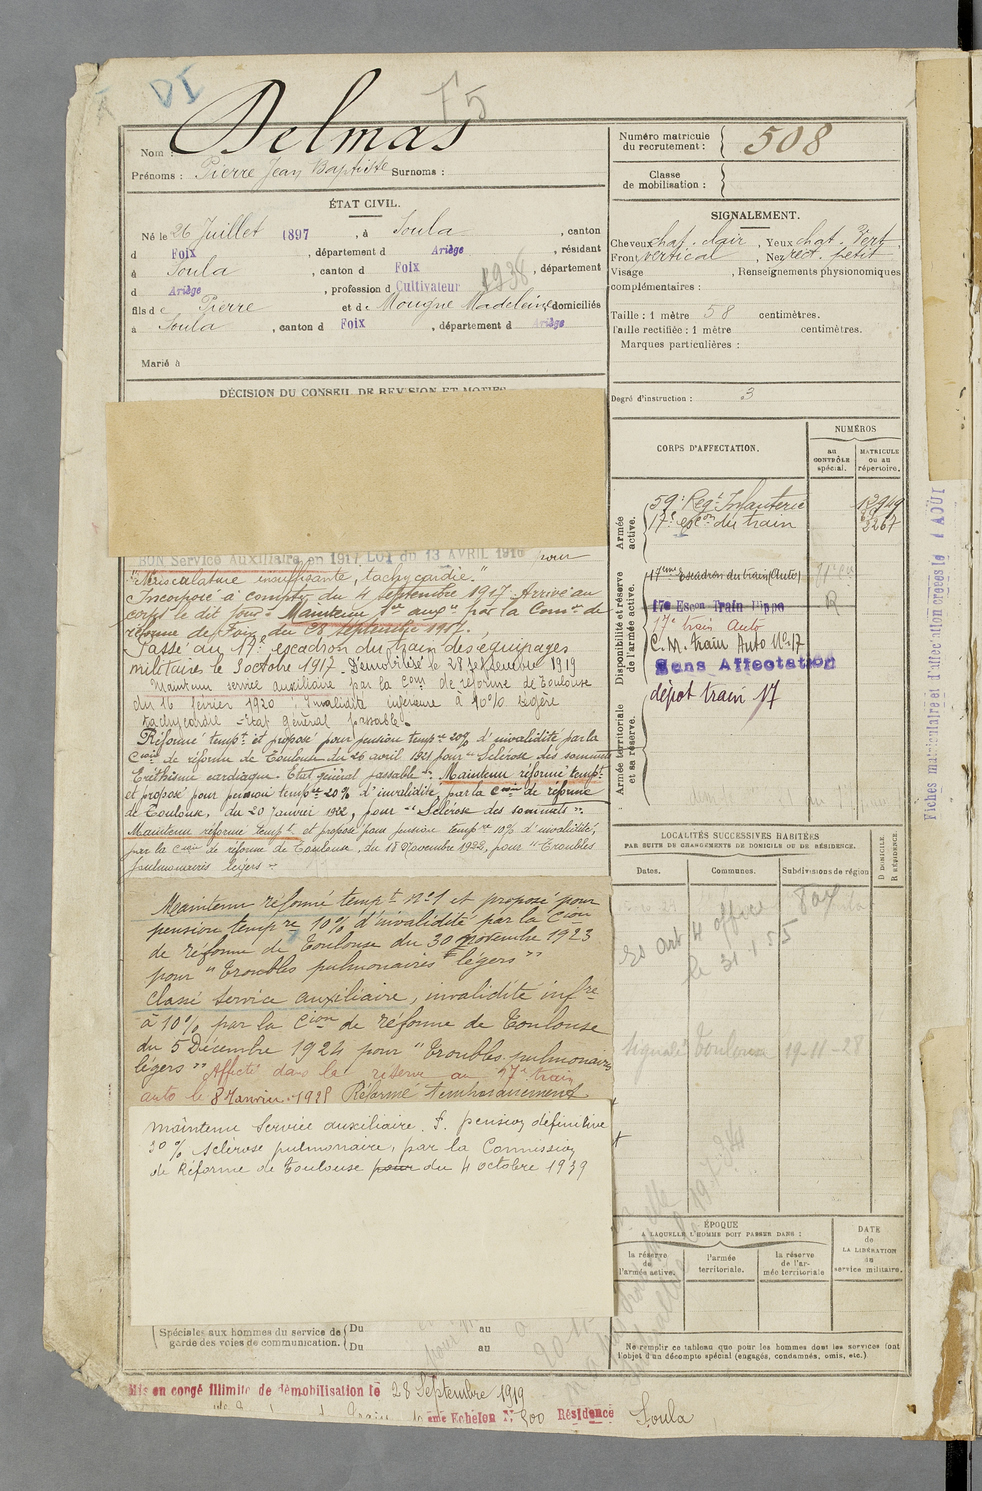 DI
F5
Nom : Delmas
Prénoms : Pierre Jean Baptiste Surnoms :
ÉTAT CIVIL.
Né le 26 Juillet 1897, à Soula, canton
d Foix, département d Ariège, résidant
à Soula, canton d Foix, département
d Ariège, profession d Cultivateur 1938
fils de Pierre et d Mougne Madeleine domiciliés
à Soula, canton d Foix, département d Ariège
Marié à
DÉCISION DU CONSEIL DE REVISION ET MOTIFS
BON Service Auxiliaire en 1917 LOI du 13 AVRIL 1916 pour
"Musculature insuffisante, tachycardie."
Incorporé à compter du 4 septembre 1917. Arrivé au
corps le dit jour. Maintenu Sce auxre par la Comon de
réforme de Foix du 28 septembre 1917.
Passé au 17e escadron du train des équipages
militaires le 3 octobre 1917. Démobilisé le 28 septembre 1919
Maintenu service auxiliaire par la Com de réforme de Toulouse
du 16 février 1920. Invalidité inférieure à 10% légère
tachycardie - Etat général passable.
Réformé tempt et proposé pour pension tempre 20% d'invalidité par la
Cion de réforme de Toulouse du 26 avril 1921 pour "Sclérose des sommets
Eréthisme cardiaque. Etat général passable". Maintenu réformé tempt
et proposé pour pension tempre 20% d'invalidité, par la Cion de réforme
de Toulouse, du 20 Janvier 1922, pour "Sclérose des sommets".
Maintenu réformé tempt et proposé pour pension tempre 10% d'invalidité,
par la Cion de réforme de Toulouse, du 18 Novembre 1922, pour "Troubles
pulmonaires légers"
Maintenu réformé tempt n°1 et proposé pour
pension tempre 10% d'invalidité par la Cion
de réforme de Toulouse du 30 novembre 1923
pour "Troubles pulmonaires légers"
Classé service auxiliaire, invalidité infre
à 10% par la Cion de réforme de Toulouse
du 5 Décembre 1924 pour "Troubles pulmonaires
légers" Affecté dans la réserve au 17e train
auto le 8 Janvier 1925 Réformé temporairement
Maintenu Service auxiliaire. P. pension définitive
30% sclérose pulmonaire, par la Commission
de Réforme de Toulouse pour du 4 octobre 1939
Spéciales aux hommes du service de garde des voies de communication.
Du au
Du au
Mis en congé illimité de démobilisation le 28 Septembre 1919
ème Echelon N° 300 Résidence Soula
Numéro matricule du recrutement : 508
Classe de mobilisation :
SIGNALEMENT.
Cheveux chat. clair, Yeux chat. vert
Front vertical, Nez rect. petit
Visage , Renseignements physionomiques
complémentaires :
Taille : 1 mètre 58 centimètres.
Taille rectifiée : 1 mètre centimètres.
Marques particulières :
Degré d'instruction : 3
CORPS D'AFFECTATION.
NUMÉROS
au CONTRÔLE spécial.
MATRICULE ou au répertoire.
Armée active.
59e Regt Infanterie 12949
17e escon du train 3267
Disponibilité et réserve de l'armée active.
17ème Escadron du train (Auto)
17e Escon Train Hippo R
17e train Auto
C. M. train Auto N° 17
Sans Affectation
Armée territoriale et sa réserve.
dépot train 17
LOCALITÉS SUCCESSIVES HABITÉES
PAR SUITE DE CHANGEMENTS DE DOMICILE OU DE RÉSIDENCE.
Dates.
Communes.
Subdivisions de région
D DOMICILE
R RÉSIDENCE
Foix
art 4 office
le 31-1-55
Signalé Toulouse 19-11-28
ÉPOQUE
A LAQUELLE L'HOMME DOIT PASSER DANS :
la réserve de l'armée active.
l'armée territoriale.
la réserve de l'armée territoriale
DATE de LA LIBÉRATION du service militaire.
Ne remplir ce tableau que pour les hommes dont les services font
l'objet d'un décompte spécial (engagés, condamnés, omis, etc.)
Fiches matriculaire et d'affectation créées le 1 AOÛT